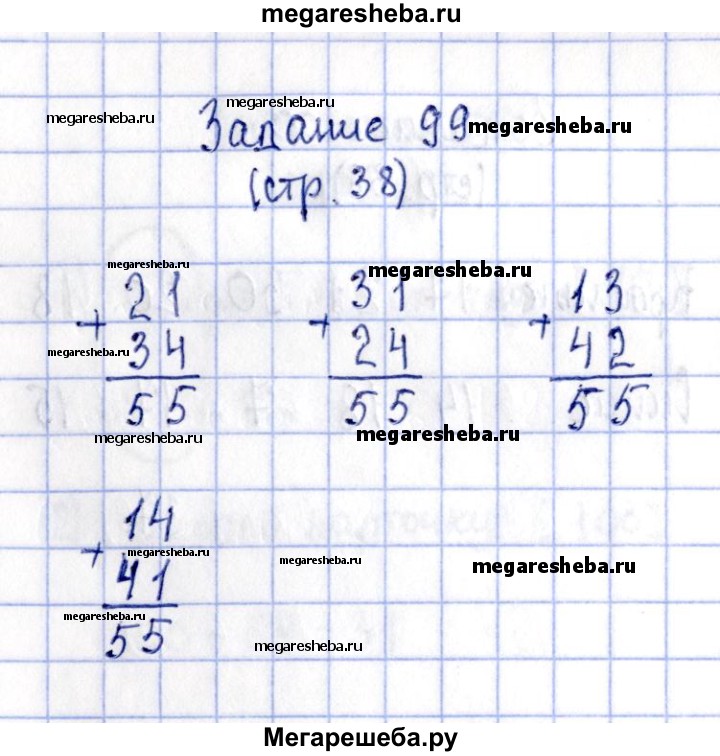 megaresheba.ru
megaresheba.ru
megaresheba.ru Задание 99 megaresheba.ru
(стр. 38)
megaresheba.ru megaresheba.ru
21 31 13
+ + +
megaresheba.ru 34 24 42
55 55 55
megaresheba.ru megaresheba.ru
14
+ megaresheba.ru megaresheba.ru megaresheba.ru
41
megaresheba.ru
55 megaresheba.ru
Мегарешеба.ру